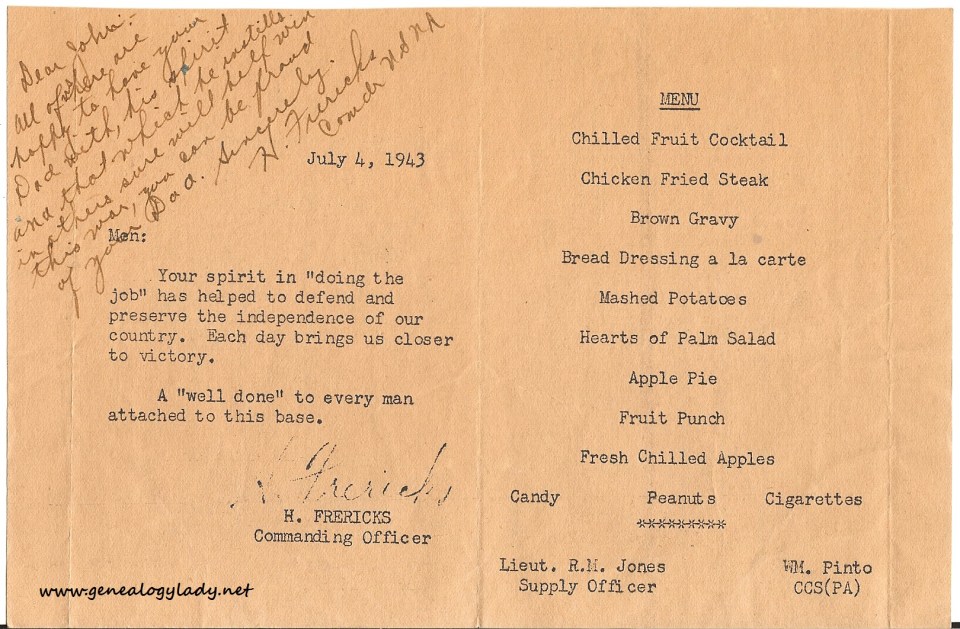 Dear John:-
All of us here are
happy to have your
Dad with, his spirit
and that which he instills
in others sure will help win
this war, you can be proud
of your Dad. Sincerely.
H. Frericks
Comdr USNR
July 4, 1943
Men:
Your spirit in "doing the
job" has helped to defend and
preserve the independence of our
country. Each day brings us closer
to victory.
A "well done" to every man
attached to this base.
H. Frericks
H. FRERICKS
Commanding Officer
www.genealogylady.net
MENU
Chilled Fruit Cocktail
Chicken Fried Steak
Brown Gravy
Bread Dressing a la carte
Mashed Potatoes
Hearts of Palm Salad
Apple Pie
Fruit Punch
Fresh Chilled Apples
Candy Peanuts Cigarettes
*********
Lieut. R.M. Jones WM. Pinto
Supply Officer CCS(PA)